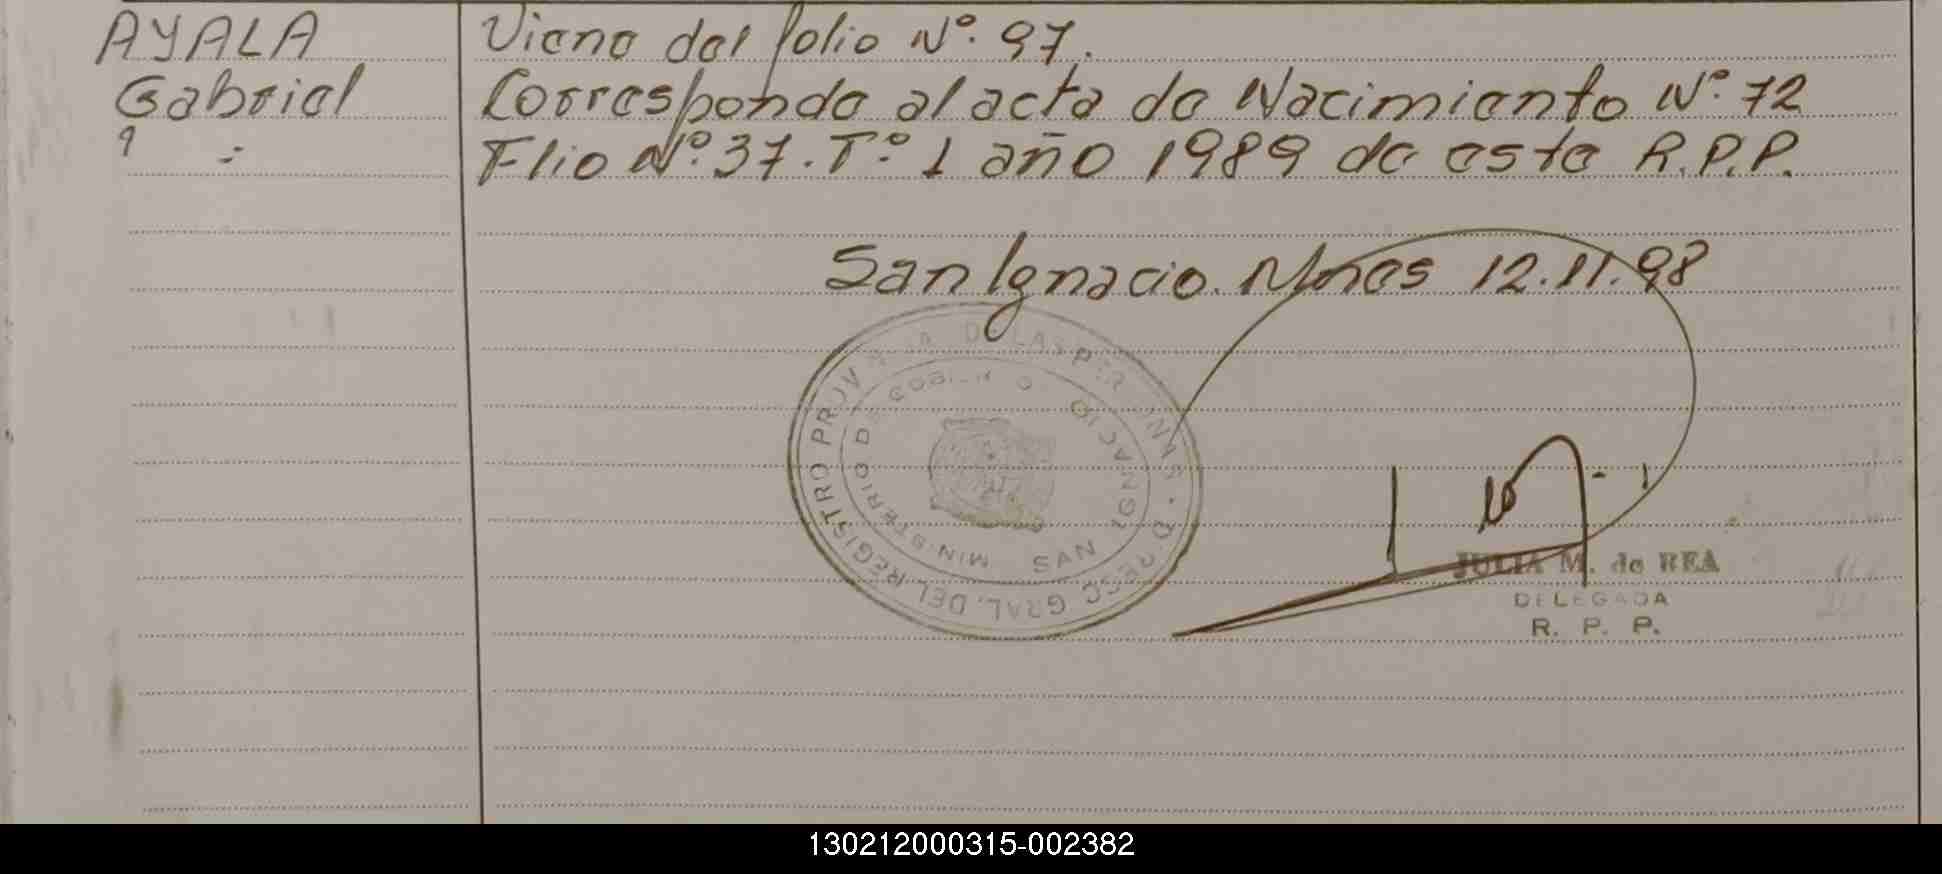 AYALA
Gabriel
Viene del folio Nº. 97.
Corresponde al acta de Nacimiento Nº. 72
Flio Nº. 37. Tº. 1 año 1989 de este R.P.P.
San Ignacio. Mnes 12.11.98
DIRECC. GRAL. DEL REGISTRO PROV. DE LAS PERSONAS
MINISTERIO DE GOBIERNO
SAN IGNACIO
JULIA M. de REA
DELEGADA
R. P. P.
130212000315-002382